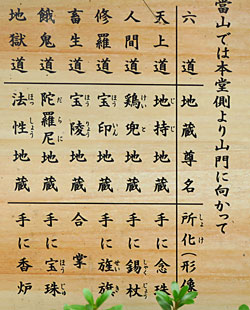 當山では本堂側より山門に向かって
六道 地蔵尊名 所化(形像
天上道 地持地蔵 手に念珠
人間道 鶏兜地蔵 手に錫杖
修羅道 宝印地蔵 手に旌旗
畜生道 宝陵地蔵 合掌
餓鬼道 陀羅尼地蔵 手に宝珠
地獄道 法性地蔵 手に香炉